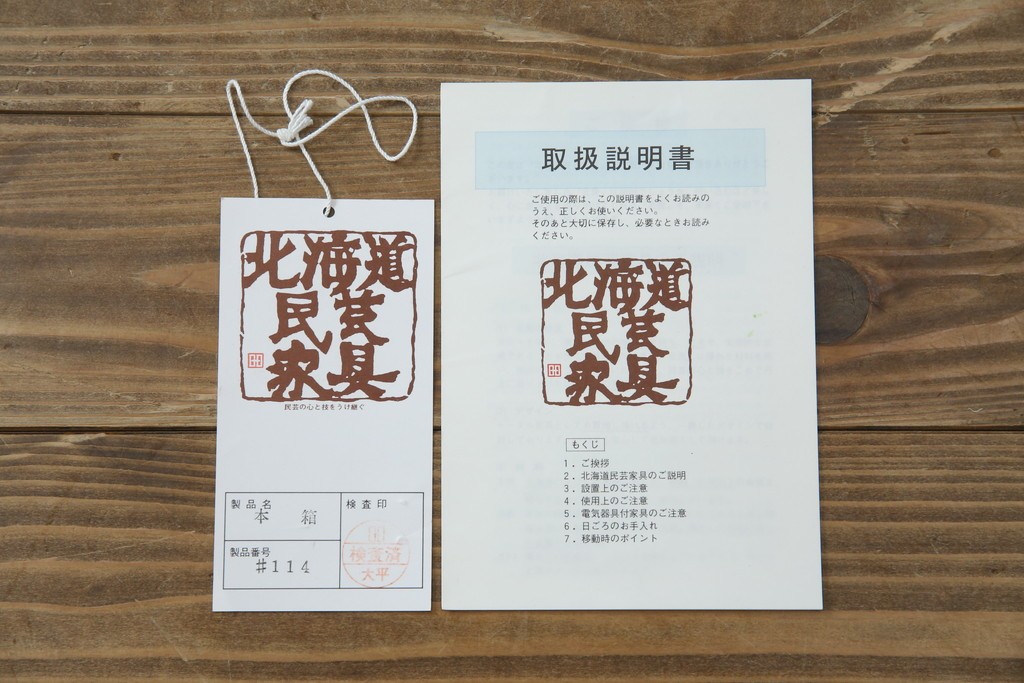 北海道
民芸
家具
民芸の心と技をうけ継ぐ
製品名
本 箱
検査印
製品番号
#114
検査済
大平
取扱説明書
ご使用の際は、この説明書をよくお読みの
うえ、正しくお使いください。
そのあと大切に保存し、必要なときお読み
ください。
北海道
民芸
家具
もくじ
1．ご挨拶
2．北海道民芸家具のご説明
3．設置上のご注意
4．使用上のご注意
5．電気器具付家具のご注意
6．日ごろのお手入れ
7．移動時のポイント